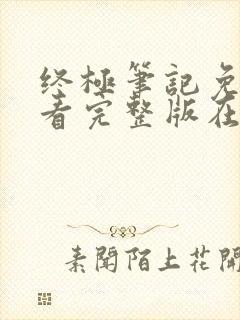 終極筆記免
看完整版在
素聞陌上花開